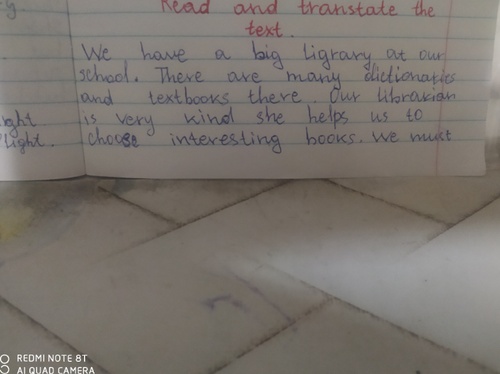 Read and translate the
text.
We have a big ligrary at our
school. There are many dictionaries
and textbooks there Our librarian
is very kind she helps us to
choose interesting books. We must
light.
REDMI NOTE 8T
AI QUAD CAMERA